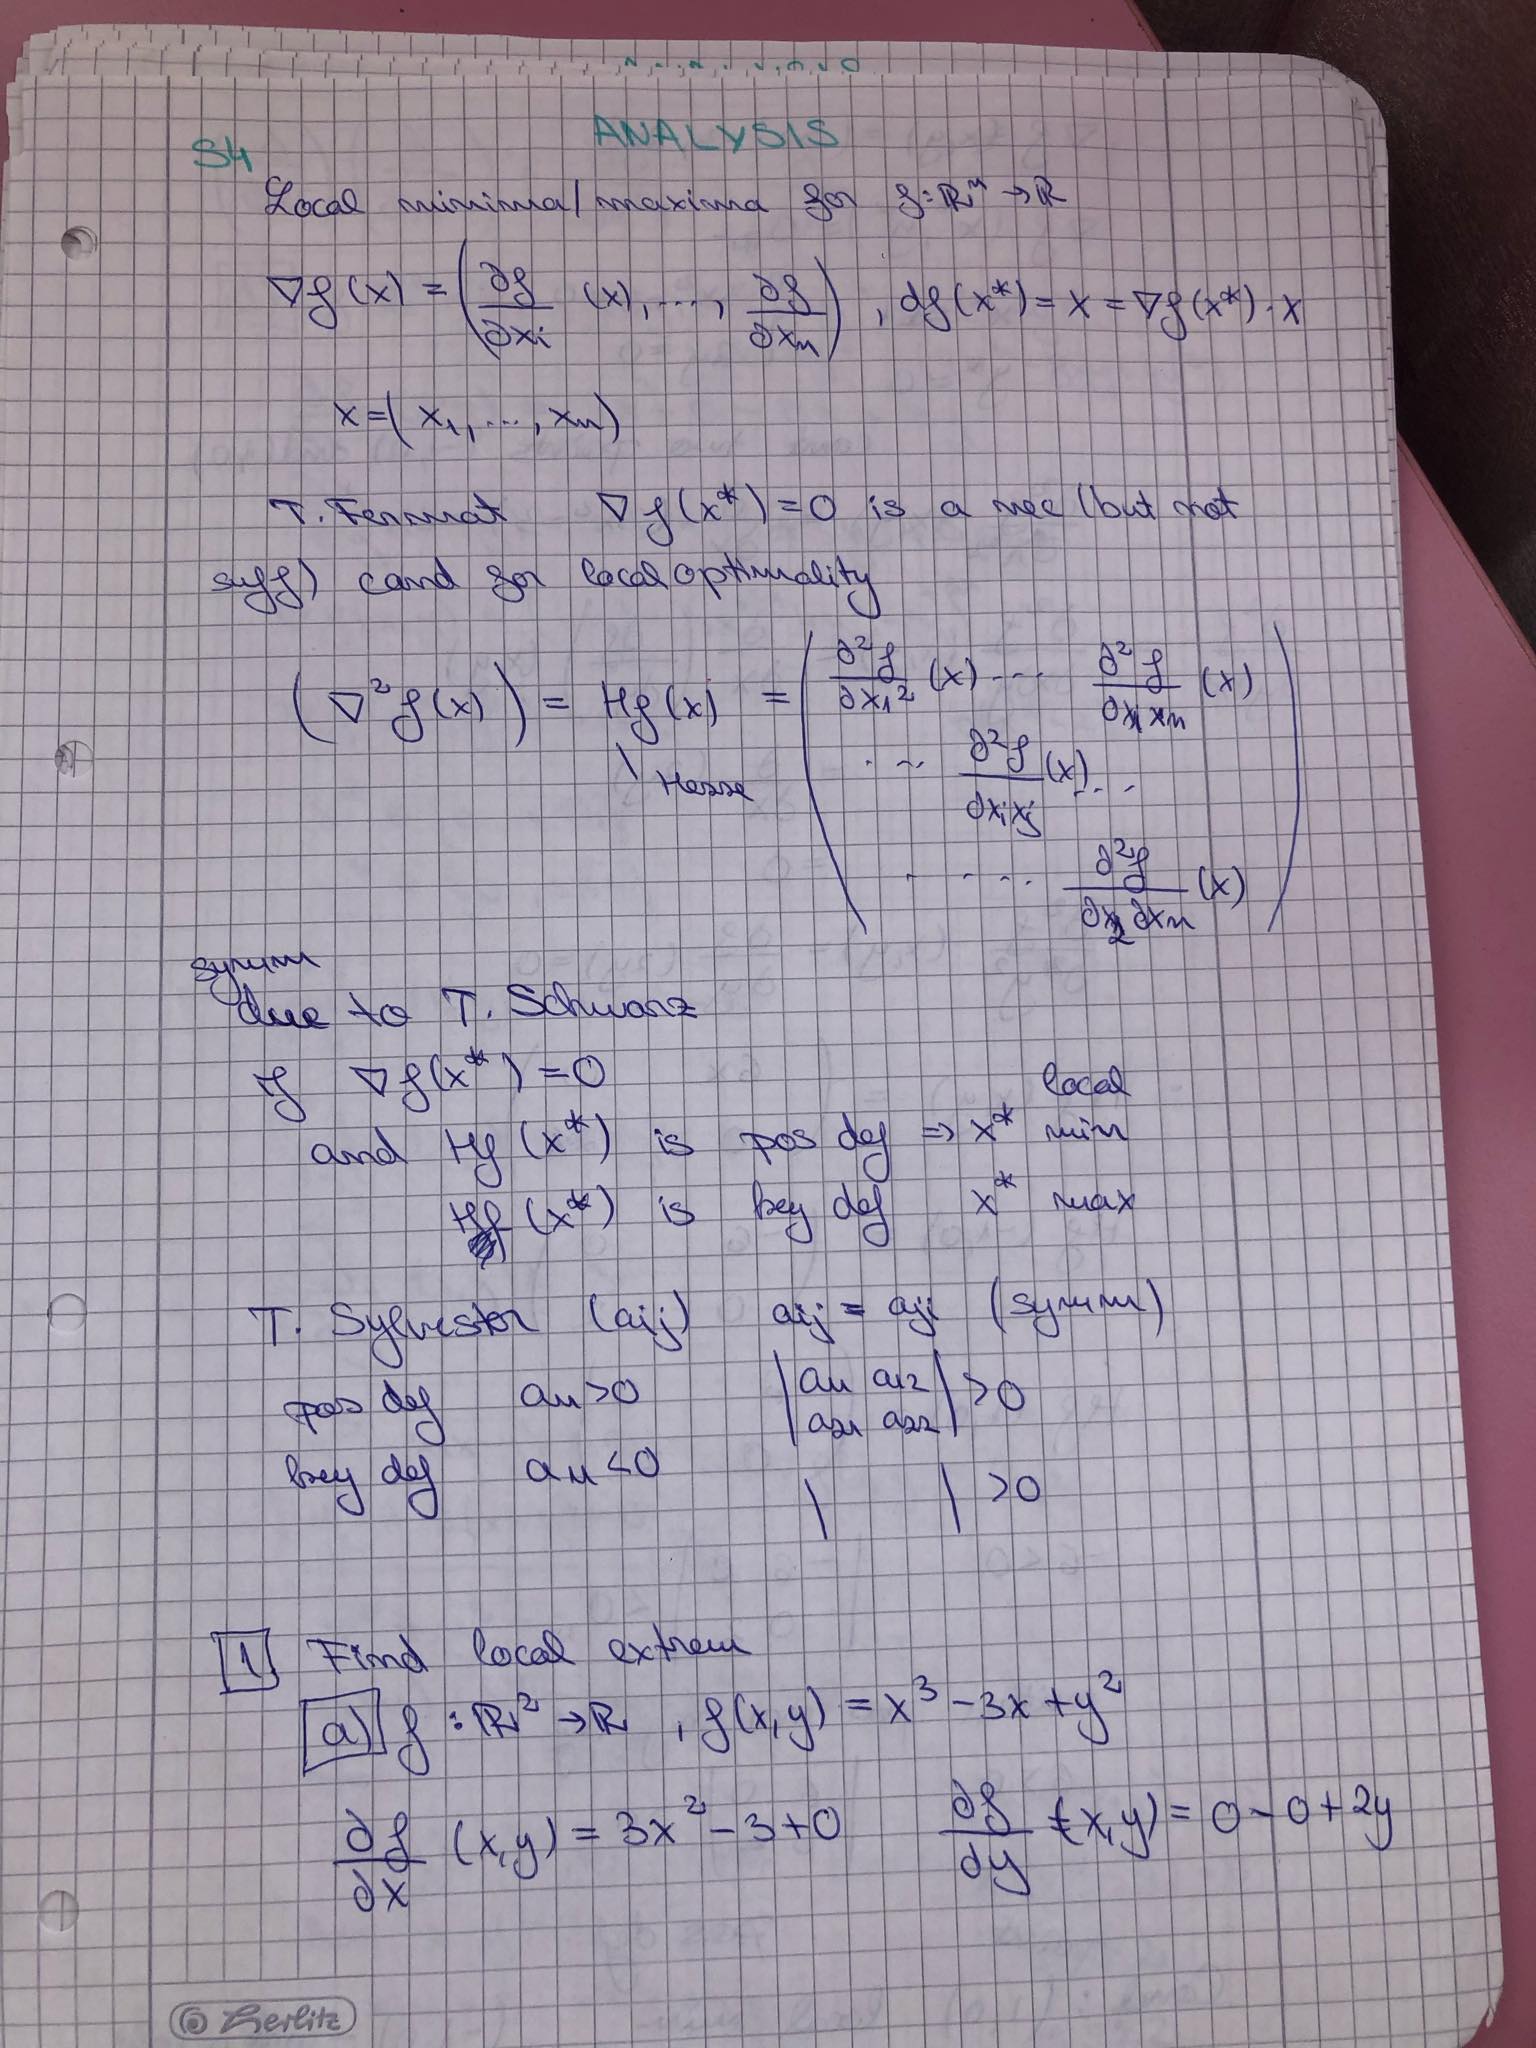 ANALYSIS
S4
Local minima/maxima for f:ℝⁿ→ℝ
∇f(x) = (∂f/∂xi (x), ..., ∂f/∂xn), df(x*) = x = ∇f(x*)·x
x=(x1, ..., xn)
T. Fermat ∇f(x*)=0 is a nec (but not
suff) cond for local optimality
(∇²f(x)) = Hf(x) = (∂²f/∂x1² (x) ... ∂²f/∂x1xn (x)
... ∂²f/∂xixj (x) ...
Hesse
.... ∂²f/∂x2∂xn (x))
symm
due to T. Schwarz
If ∇f(x*)=0
local
and Hf(x*) is pos def ⇒ x* min
Hf(x*) is neg def x* max
T. Sylvester (aij) aij = aji (symm)
pos def a11>0 |a11 a12 a21 a22| >0
neg def a11<0 | | >0
1 Find local extrem
a) f:ℝ²→ℝ, f(x,y) = x³-3x+y²
∂f/∂x (x,y) = 3x²-3+0 ∂f/∂y (x,y) = 0-0+2y
© Herlitz